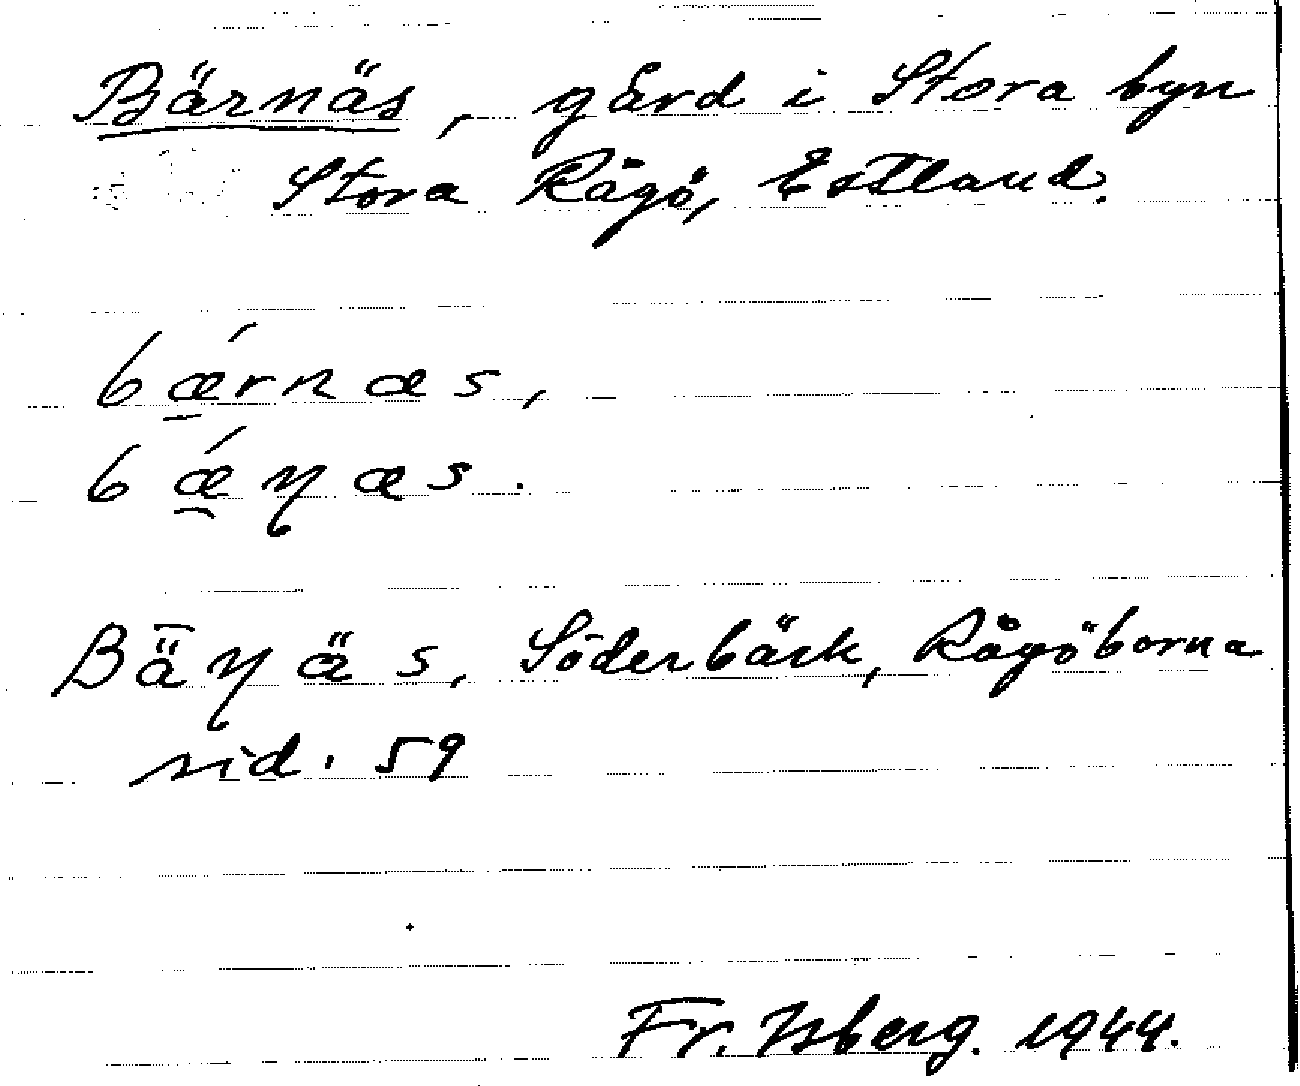 Bärnäs, gård i Stora byn
Stora Rågö, Estland.
bǽ̱rnæs,
bǽ̱ɳæs.
Bǟɳäs, Söderbäck, Rågöborna
sid. 59
Fr. Isberg. 1944.